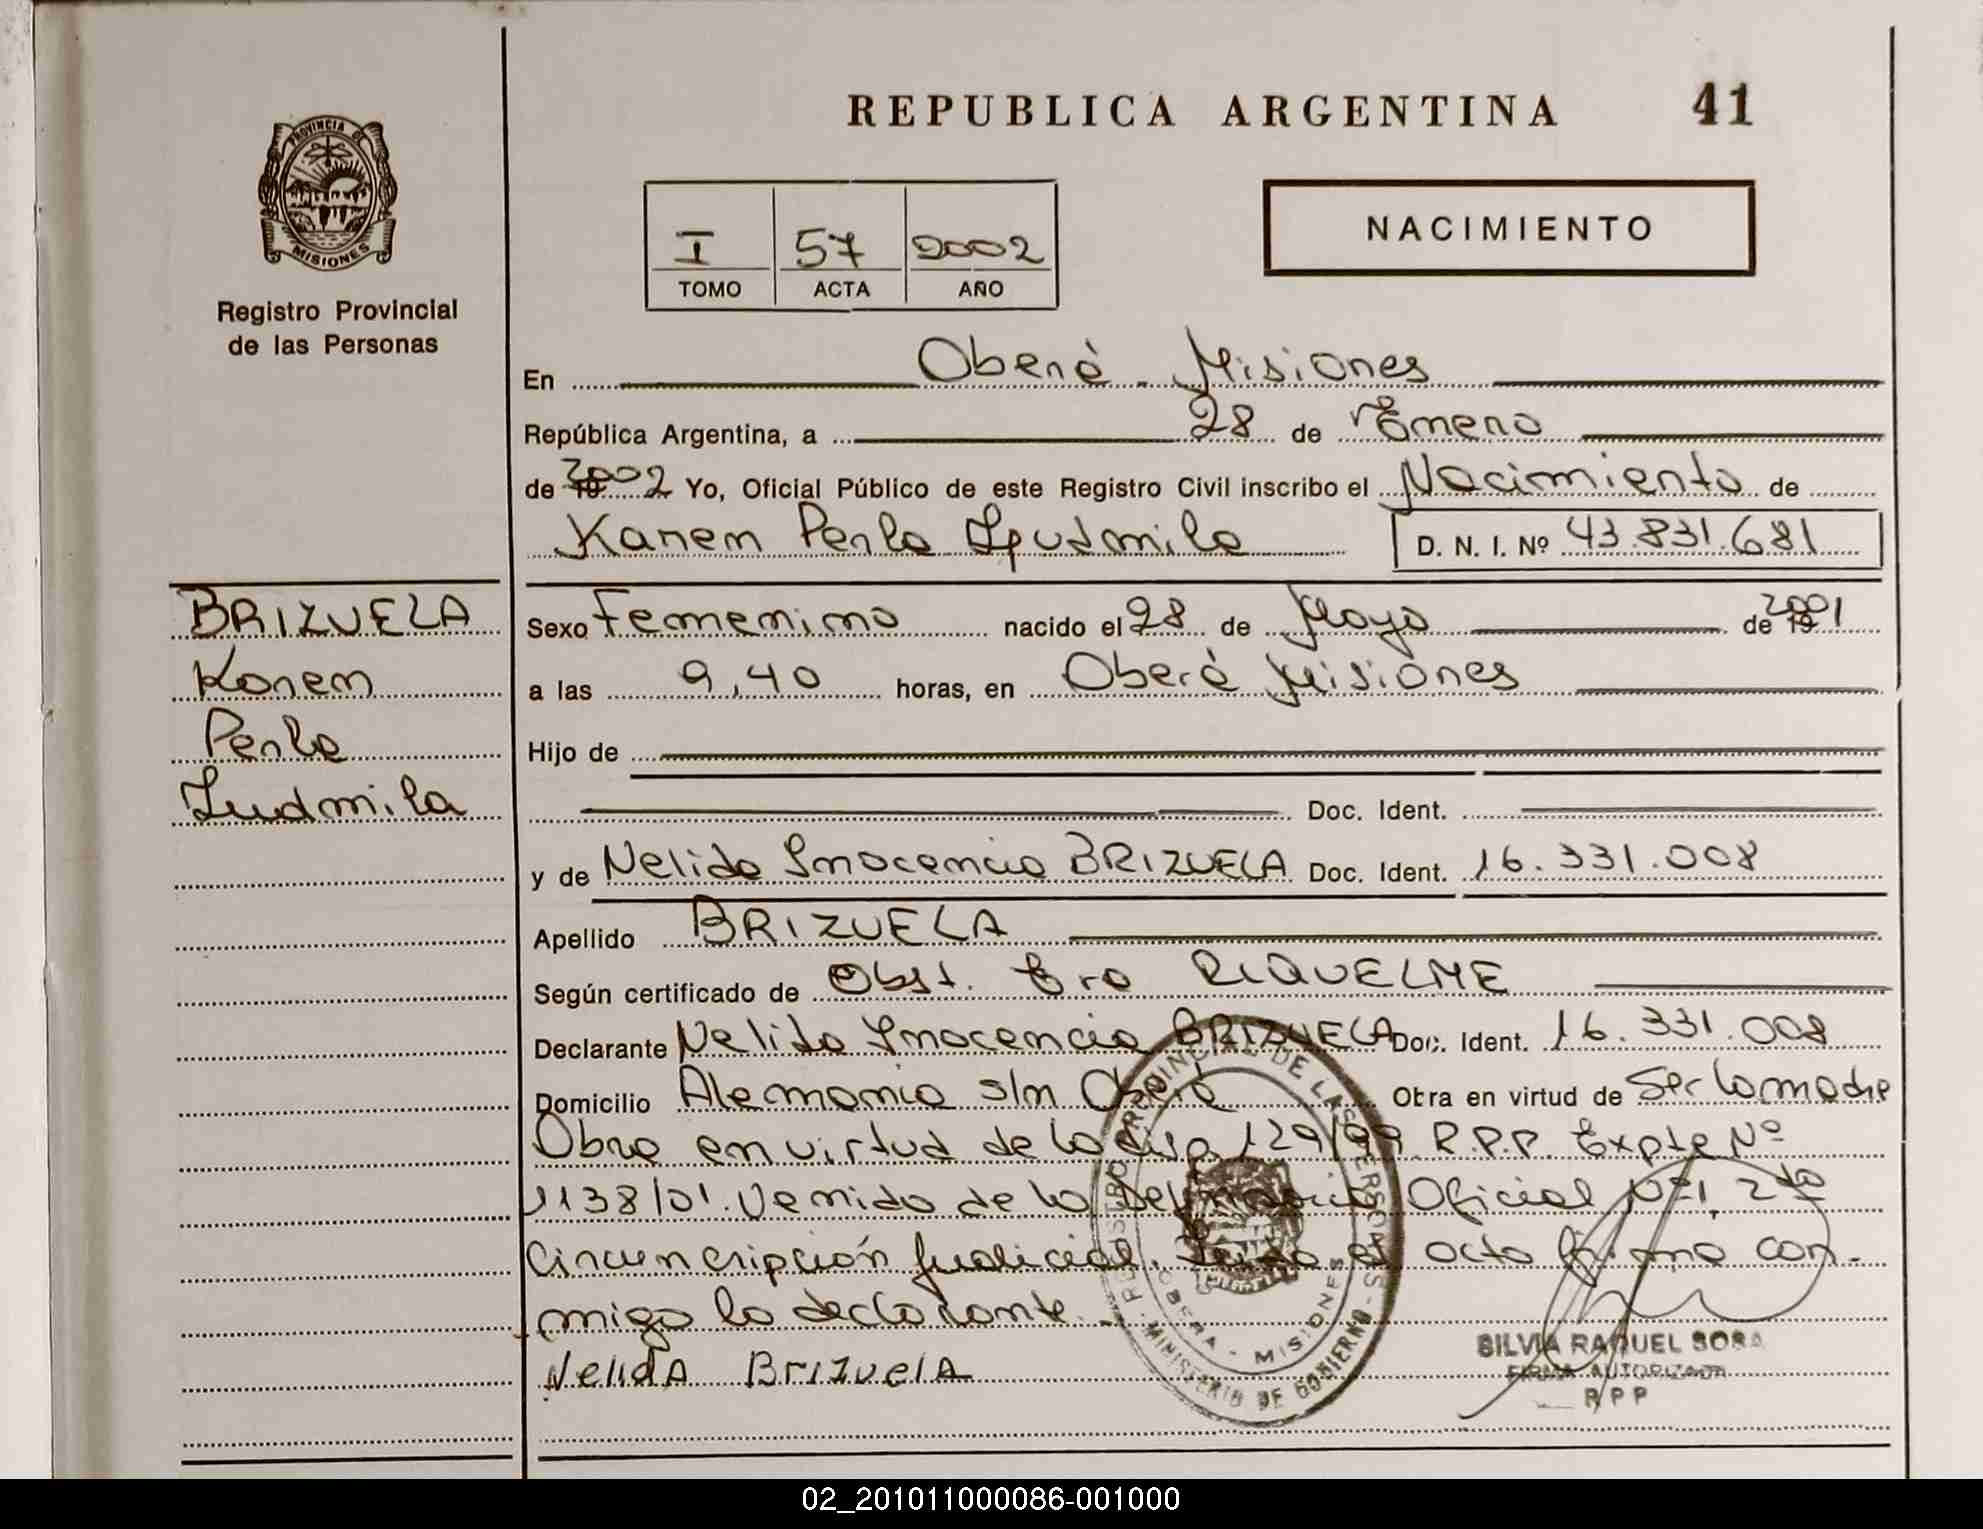 REPUBLICA ARGENTINA 41
PROVINCIA DE
MISIONES
Registro Provincial
de las Personas
I 57 2002
TOMO ACTA AÑO
NACIMIENTO
En Oberá - Misiones
República Argentina, a 28 de Enero
de 2002 Yo, Oficial Público de este Registro Civil inscribo el Nacimiento de
Karen Perla Ludmila D. N. I. Nº 43.831.681
BRIZUELA
Karen
Perla
Ludmila
Sexo Femenino nacido el 28 de Mayo de 2001
a las 9,40 horas, en Oberá Misiones
Hijo de
Doc. Ident.
y de Nelida Inocencia BRIZUELA Doc. Ident. 16.331.008
Apellido BRIZUELA
Según certificado de Obst. RIQUELME
Declarante Nelida Inocencia BRIZUELA Doc. Ident. 16.331.008
Domicilio Alemania s/n Oberá Obra en virtud de Ser la madre
Obra en virtud de la disp. 129/99. R.P.P. Expte Nº
1138/01. Venido de la Defensoria Oficial Nº1, 2da
Circuncripción Judicial. Leida el acta firma con-
migo la declarante.-
Nelida BrizuelA
REGISTRO PROVINCIAL DE LAS PERSONAS
OBERA - MISIONES
MINISTERIO DE GOBIERNO
SILVIA RAQUEL SOSA
FIRMA AUTORIZADA
R P P
02_201011000086-001000